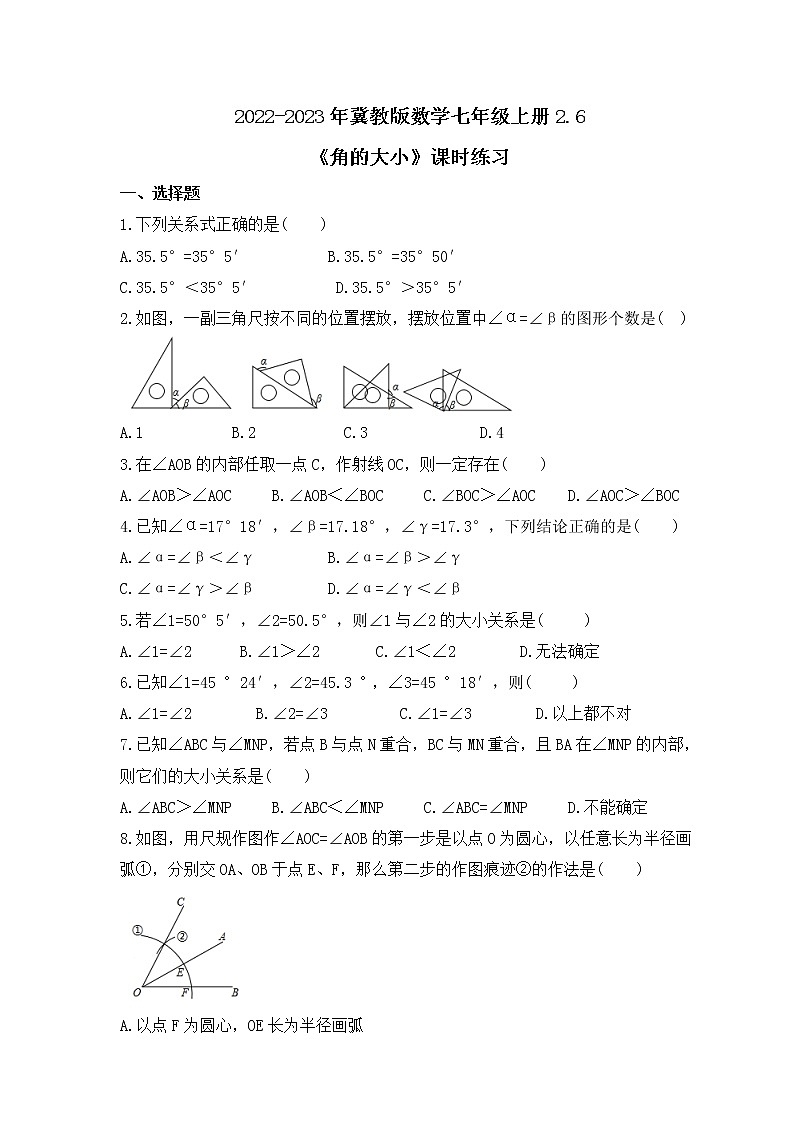 2022-2023年冀教版数学七年级上册2.6
《角的大小》课时练习
一、选择题
1.下列关系式正确的是(　　)
A.35.5°=35°5′　　B.35.5°=35°50′
C.35.5°＜35°5′　　D.35.5°＞35°5′
2.如图，一副三角尺按不同的位置摆放，摆放位置中∠α=∠β的图形个数是(　)
α β α β α β α β
A.1　　B.2　　C.3　　D.4
3.在∠AOB的内部任取一点C，作射线OC，则一定存在(　　)
A.∠AOB＞∠AOC　　B.∠AOB＜∠BOC　　C.∠BOC＞∠AOC　　D.∠AOC＞∠BOC
4.已知∠α=17°18′，∠β=17.18°，∠γ=17.3°，下列结论正确的是(　　)
A.∠α=∠β＜∠γ　　B.∠α=∠β＞∠γ
C.∠α=∠γ＞∠β　　D.∠α=∠γ＜∠β
5.若∠1=50°5′，∠2=50.5°，则∠1与∠2的大小关系是(　　)
A.∠1=∠2　　B.∠1＞∠2　　C.∠1＜∠2　　D.无法确定
6.已知∠1=45 °24′，∠2=45.3 °，∠3=45 °18′，则(　　)
A.∠1=∠2　　B.∠2=∠3　　C.∠1=∠3　　D.以上都不对
7.已知∠ABC与∠MNP，若点B与点N重合，BC与MN重合，且BA在∠MNP的内部，
则它们的大小关系是(　　)
A.∠ABC＞∠MNP　　B.∠ABC＜∠MNP　　C.∠ABC=∠MNP　　D.不能确定
8.如图，用尺规作图作∠AOC=∠AOB的第一步是以点O为圆心，以任意长为半径画
弧①，分别交OA、OB于点E、F，那么第二步的作图痕迹②的作法是(　　)
C
① ② A
E
O F B
A.以点F为圆心，OE长为半径画弧